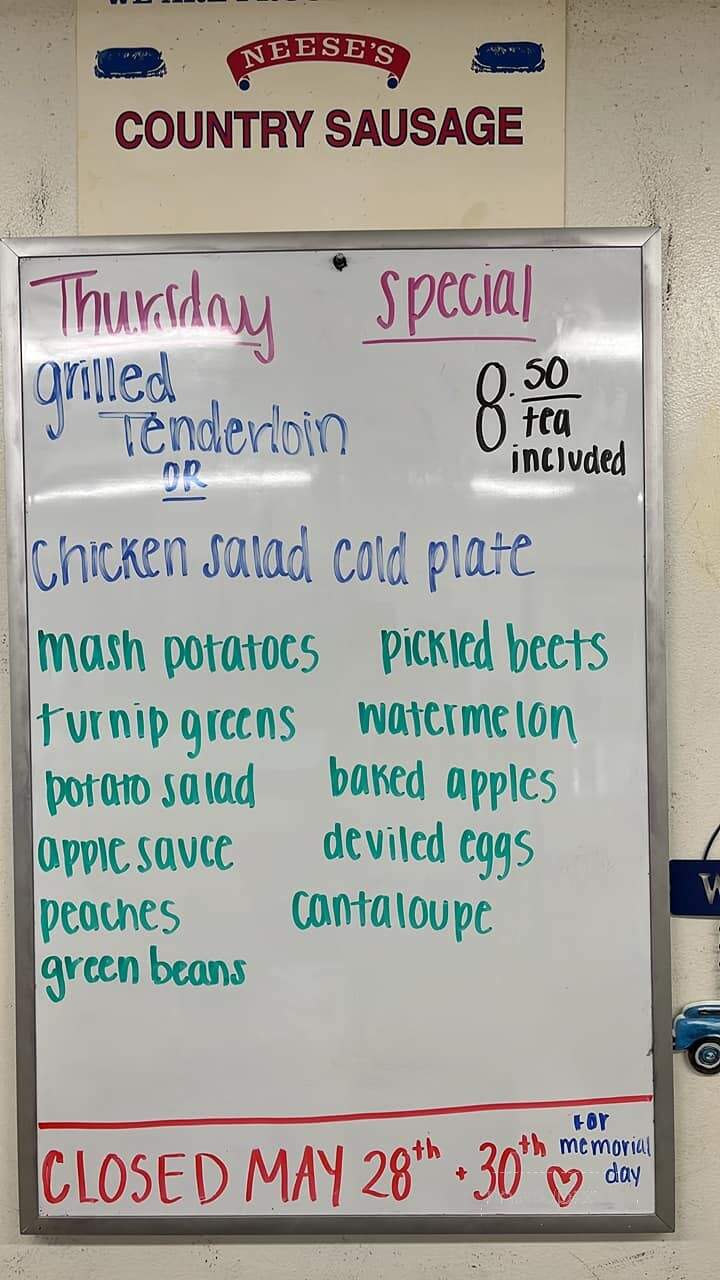 NEESE'S
COUNTRY SAUSAGE
Thursday special
grilled
Tenderloin
OR
8.50
tea
included
chicken salad cold plate
mash potatoes pickled beets
turnip greens watermelon
potato salad baked apples
apple sauce deviled eggs
peaches cantaloupe
green beans
CLOSED MAY 28th + 30th
FOR
memorial
day